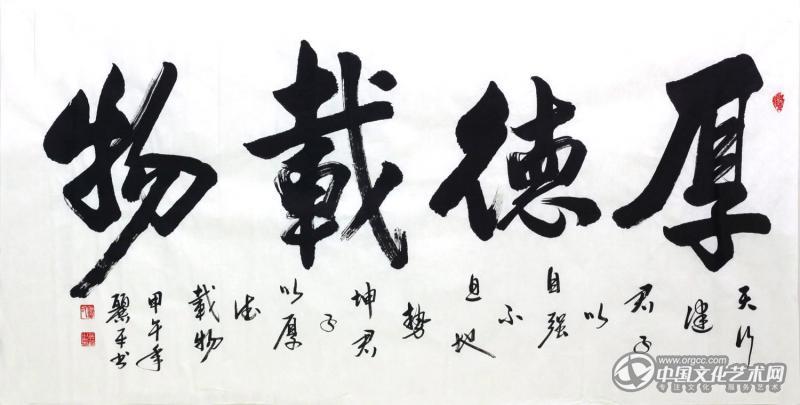 厚德載物
天行
健
君子
以
自强
不
息地
勢
坤君
子
以厚
德
載物
甲午年
平书
www.orgcc.com
中国文化艺术网
专注文化 服务艺术